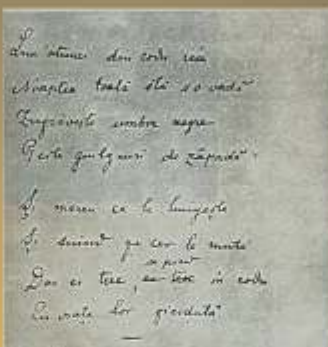 Luna atunci din codru iese
Noaptea toată stă s'o vadă
Zugrăvește umbre negre
Peste giulgiuri de zăpadă.
Și mereu ca le lungește
Și suind pe cer le mută
se pierd
Dar ei trec, în codru
Cu viața lor pierdută